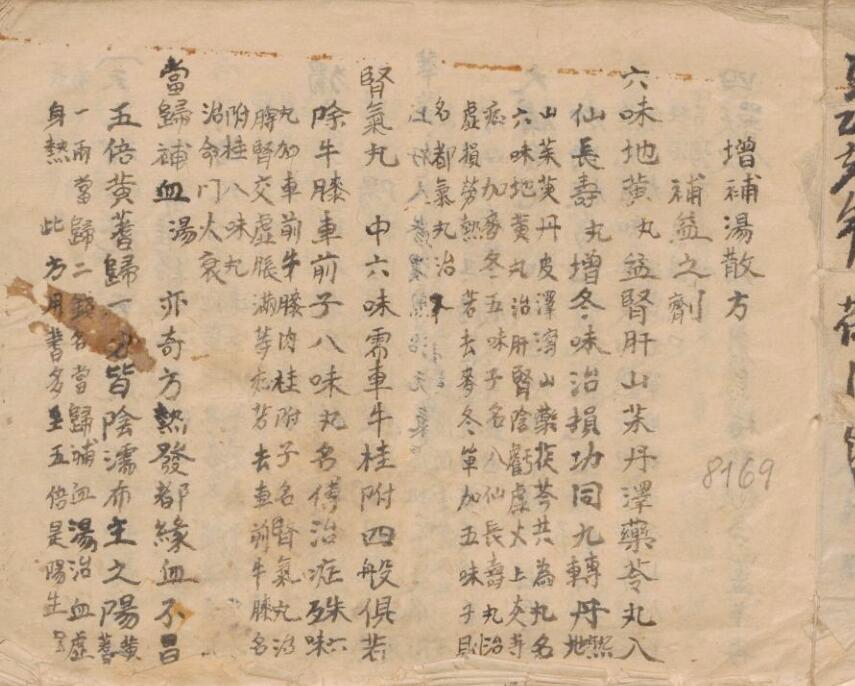 年荷月
增補湯散方
補益之劑
六味地黄丸益腎肝山茱丹澤藥苓丸八
仙長壽丸增冬味治損功同九轉丹熟地
山茱萸丹皮澤瀉山藥茯苓共為丸名
六味地黄丸治肝腎陰虧虛火上炎等
症如加麥冬五味子名八仙長壽丸治
虛損勞熱 若去麥冬單加五味子則
名都氣丸治
腎氣丸 中六味需車牛桂附四般俱若
除牛膝車前子八味丸名傳治症殊六味
丸加車前牛膝肉桂附子名腎氣丸治
脾腎交虛脹滿等症若去車前牛膝名
附桂八味丸
治命門火衰
當歸補血湯 亦奇方熱發都緣血不昌
五倍黄蓍歸一皆陰濡布主之陽黄蓍
一兩當歸二錢名當歸補血湯治血虛
身熱 此方用蓍多至五倍是陽生
8169